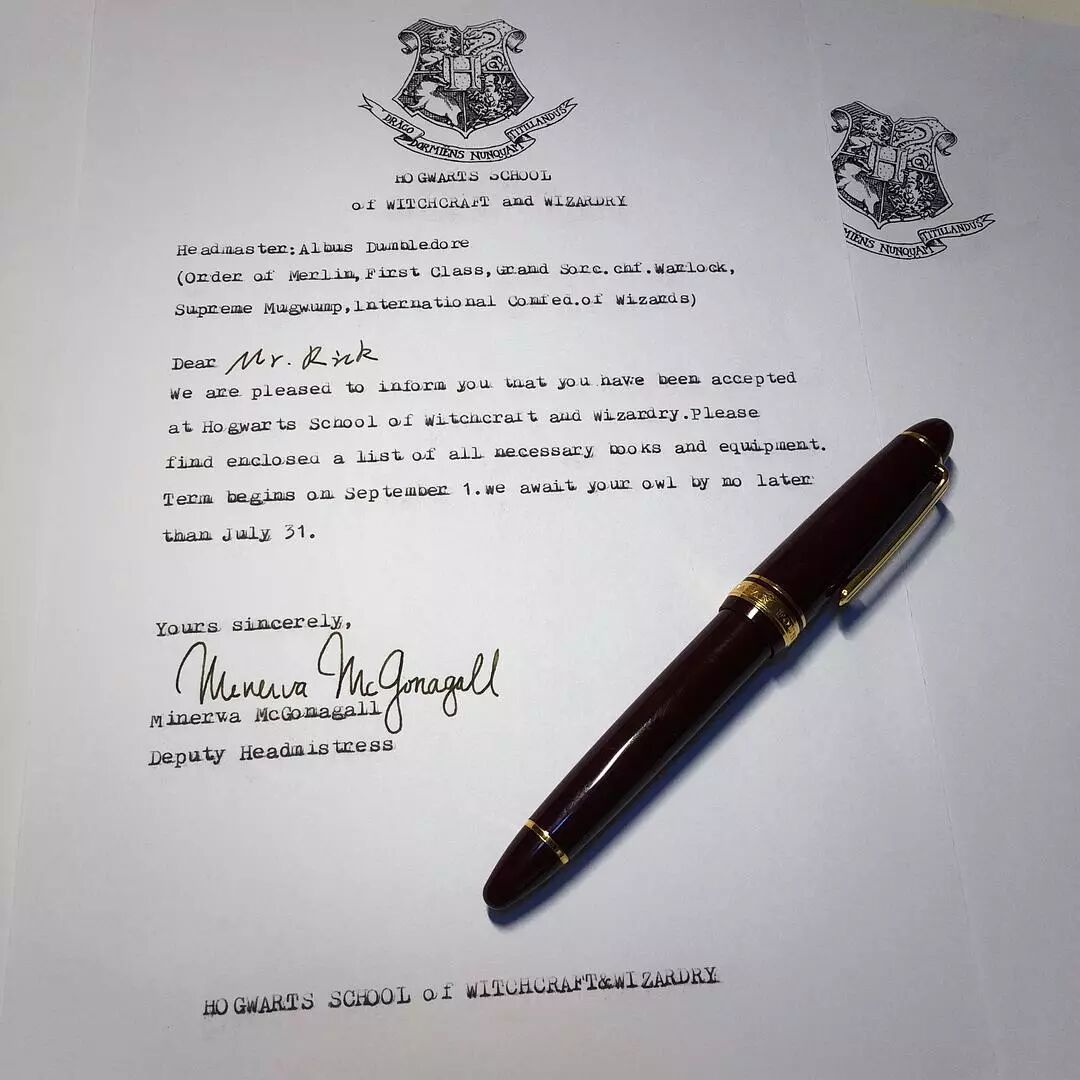 DRACO DORMIENS NUNQUAM TITILLANDUS
HOGWARTS SCHOOL
of WITCHCRAFT and WIZARDRY
MIENS NUNQUAM TITILLANDUS
Headmaster:Albus Dumbledore
(Order of Merlin,First Class,Grand Sorc.chf.Warlock,
Supreme Mugwump,International Confed.of Wizards)
Dear Mr. Rick
We are pleased to inform you that you have been accepted
at Hogwarts School of Witchcraft and Wizardry.Please
find enclosed a list of all necessary books and equipment.
Term begins on September 1.we await your owl by no later
than July 31.
Yours sincerely,
Minerva McGonagall
Minerva McGonagall
Deputy Headmistress
HOGWARTS SCHOOL of WITCHCRAFT&WIZARDRY